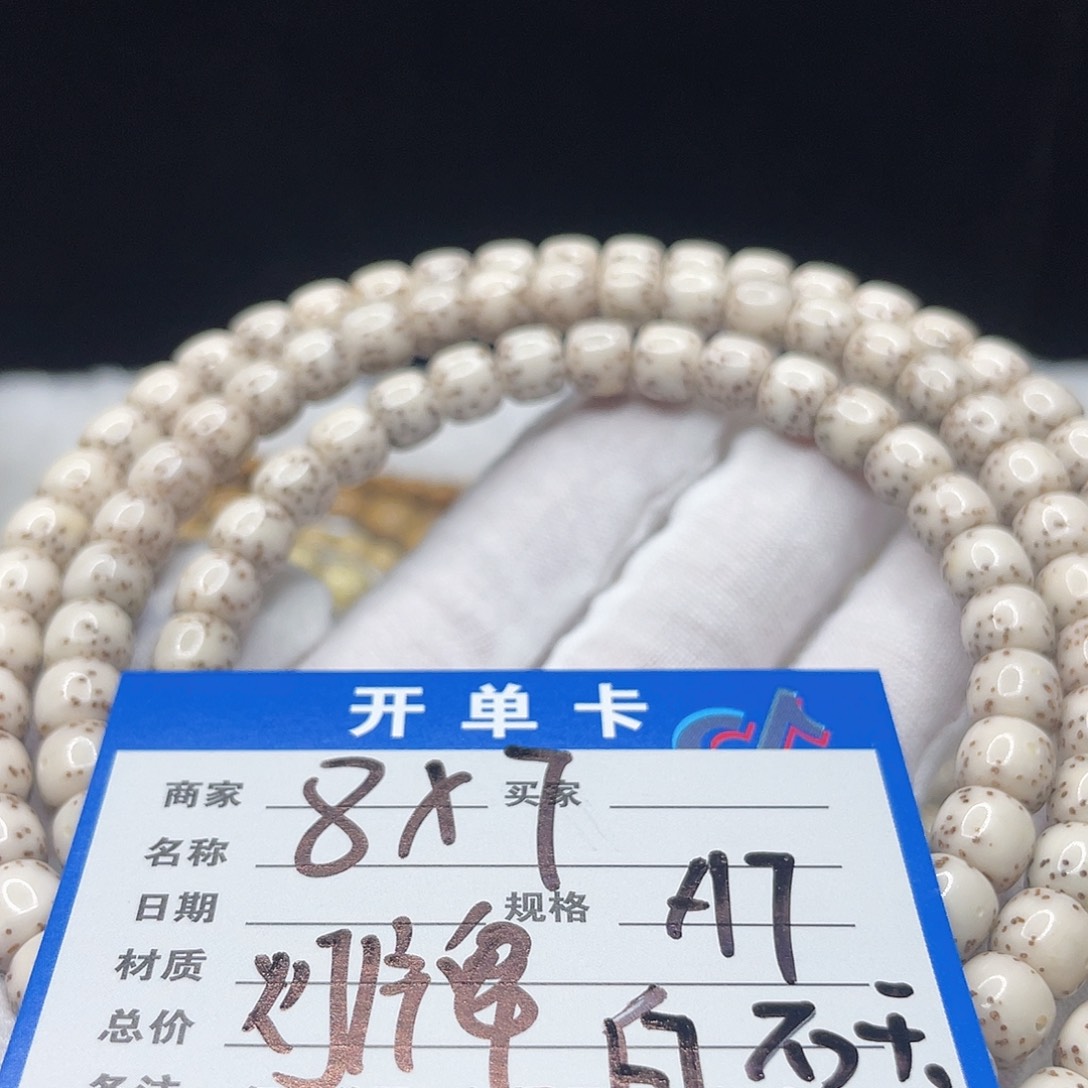 开单卡
商家 8×7 买家
名称
日期 规格 A7
材质
总价 白
备注